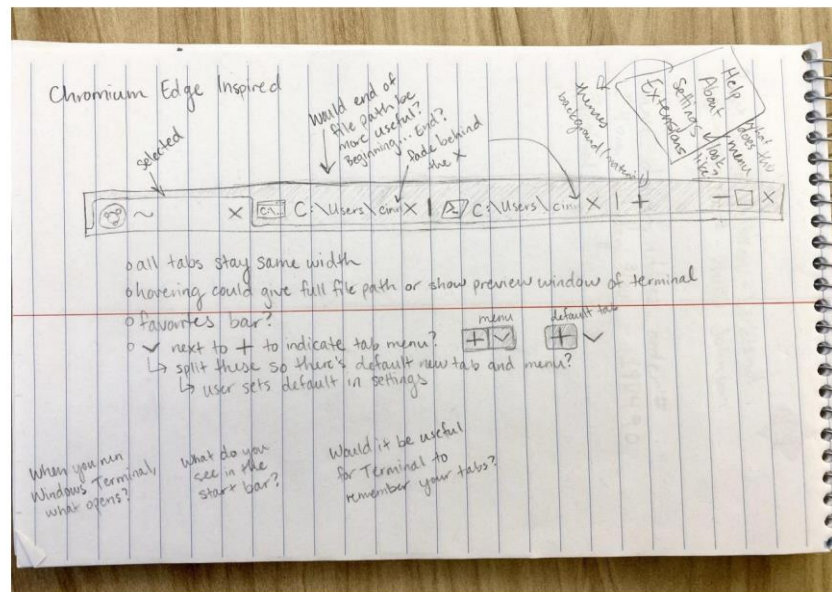 Chromium Edge Inspired
selected
Would end of
file path be
more useful?
Beginning...End?
fade behind
the X
themes
background (material)
Help
About
Settings
Extensions
what does
this menu
look like?
~ X C:\ C:\Users\cinn X | C:\Users\cinn X | + - □ X
o all tabs stay same width
o hovering could give full file path or show preview window of terminal
o favorites bar?
menu
default tab
o ∨ next to + to indicate tab menu? + ∨ + ∨
↳ split these so there's default new tab and menu?
↳ user sets default in settings
When you run
Windows Terminal,
what opens?
What do you
see in the
start bar?
Would it be useful
for Terminal to
remember your tabs?